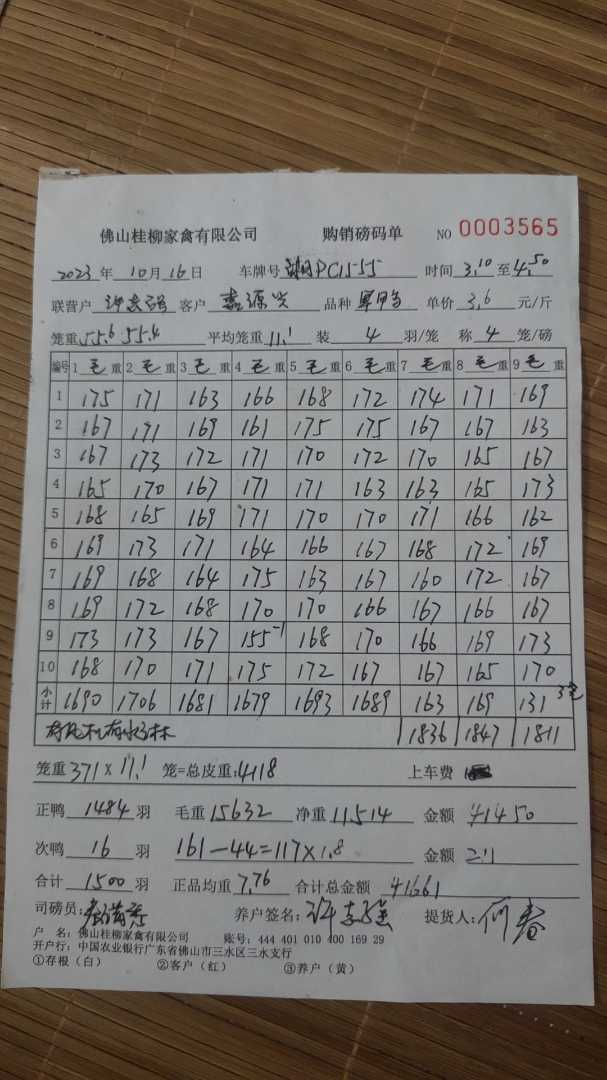 佛山桂柳家禽有限公司 购销磅码单 NO 0003565
2023年10月16日 车牌号 PC1555 时间3.10至4.50
联营户 客户 嘉源兴 品种 单价 3.6 元/斤
笼重 55.6 55.4 平均笼重 11.1 装 4 羽/笼 称 4 笼/磅
编号 1毛重 2毛重 3毛重 4毛重 5毛重 6毛重 7毛重 8毛重 9毛重
1 175 171 163 166 168 172 174 171 169
2 167 171 169 161 175 175 167 167 163
3 167 173 172 171 170 172 170 165 167
4 165 170 167 171 171 163 163 165 173
5 168 165 169 171 170 170 171 166 162
6 169 173 171 164 166 167 168 172 169
7 169 168 164 175 163 167 160 172 167
8 169 172 168 170 170 166 167 166 167
9 173 173 167 155-1 168 170 166 169 173
10 168 170 171 175 172 167 167 165 170
小计 1690 1706 1681 1679 1693 1689 163 169 131 3毛
1836 1847 1811
笼重 371 × 11.1 笼=总皮重:4118 上车费
正鸭 1484 羽 毛重 15632 净重 11514 金额 41450
次鸭 16 羽 161-44=117×1.8 金额 211
合计 1500 羽 正品均重 7.76 合计总金额 41661
司磅员: 养户签名: 许 强 提货人: 何春
户 名:佛山桂柳家禽有限公司 账号:444 401 010 400 169 29
开户行:中国农业银行广东省佛山市三水区三水支行
①存根(白) ②客户(红) ③养户(黄)